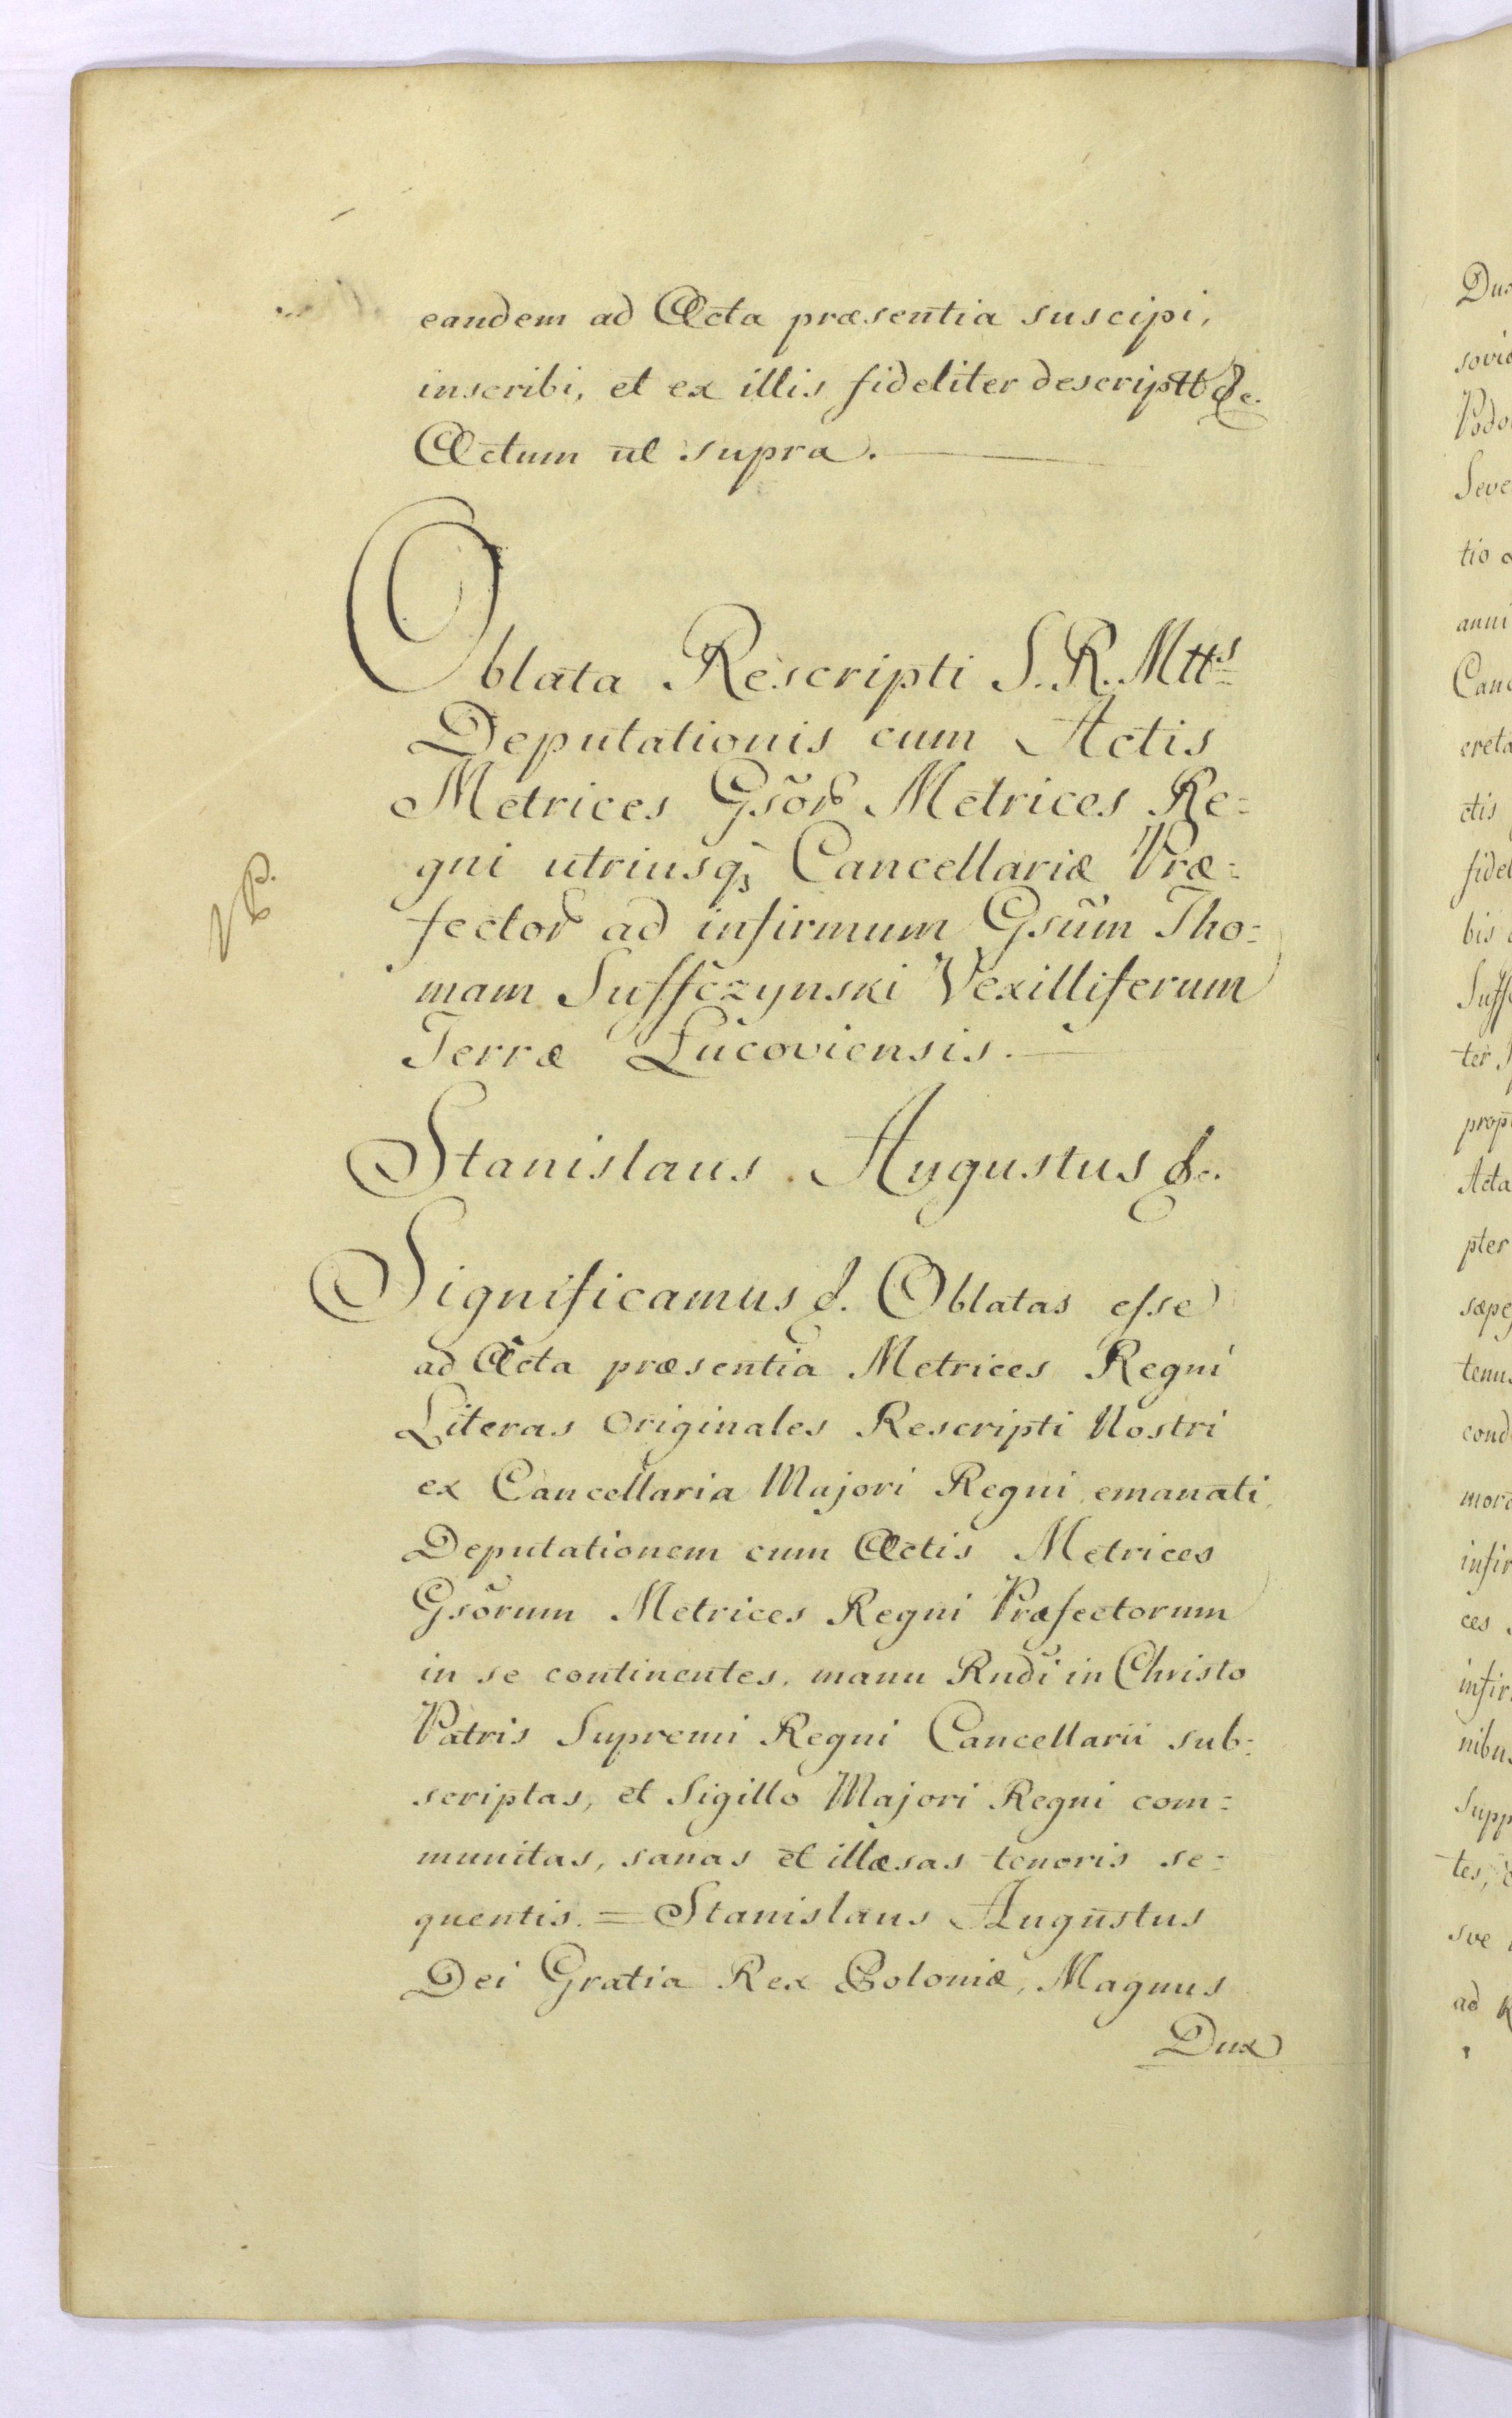 eandem ad Acta præsentia suscipi,
inscribi, et ex illis fideliter descriptt &c.
Actum ut supra.
Oblata Rescripti S. R. Mtts
Deputationis cum Actis
Metrices Gsõr Metrices Re=
gni utriusq̃ Cancellariæ Præ=
fector ad infirmum Gsũm Tho=
mam Suffczynski Vexilliferum
Terræ Lucoviensis.
Stanislaus Augustus &c.
Significamus &. Oblatas esse
ad Acta præsentia Metrices Regni
Literas Originales Rescripti Nostri
ex Cancellaria Majori Regni emanati,
Deputationem cum Actis Metrices
Gsõrum Metrices Regni Præfectorum
in se continentes, manu Rndi in Christo
Patris Supremi Regni Cancellarii sub=
scriptas, et Sigillo Majori Regni com=
munitas, sanas et illæsas tenoris se=
quentis. = Stanislaus Augustus
Dei Gratia Rex Poloniæ, Magnus
Dux